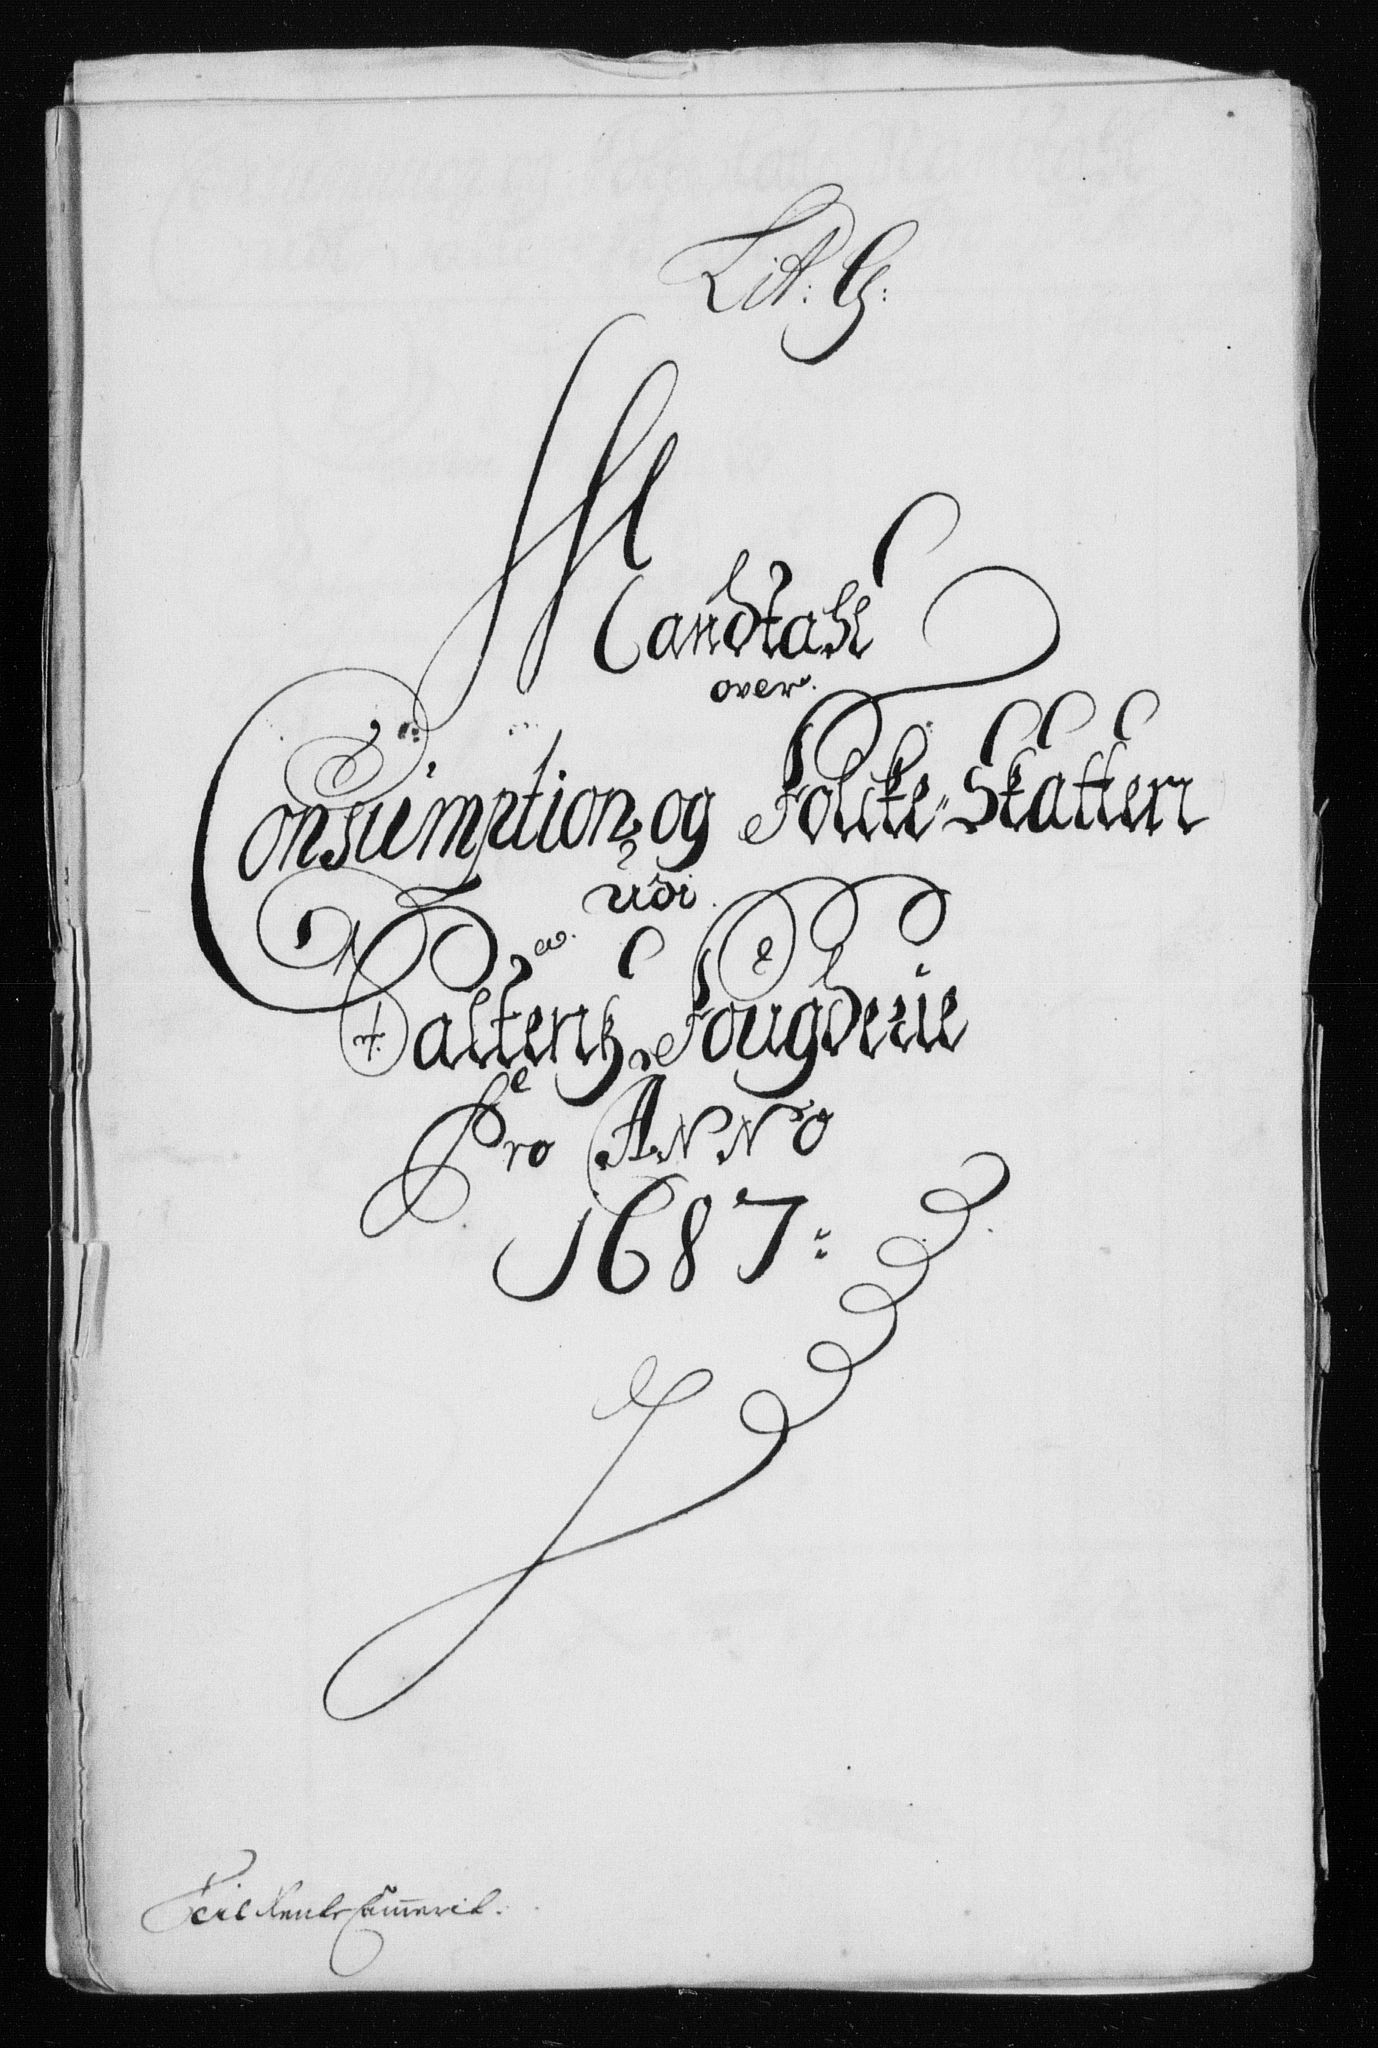 Lit. G:
Mandtahl
over
Consumption og Folcke-Skatten
udi
Saltens Fougderie
Pro ANNO
1687:
Teil Rente Cammerit.